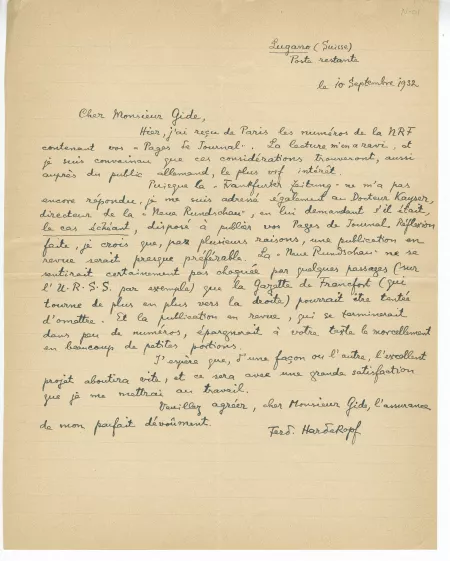 Lugano (Suisse)
Poste restante
le 10 Septembre 1932
Cher Monsieur Gide,
Hier, j'ai reçu de Paris les numéros de la NRF
contenant vos "Pages de Journal". La lecture m'en a ravi, et
je suis convaincu que ces considérations trouveront, aussi
auprès du public allemand, le plus vif intérêt.
Puisque la "Frankfurter Zeitung" ne m'a pas
encore répondu, je me suis adressé également au Docteur Kayser,
directeur de la "Neue Rundschau", en lui demandant s'il était,
le cas échéant, disposé à publier vos Pages de Journal. Réflexion
faite, je crois que, par plusieurs raisons, une publication en
revue serait presque préférable. La "Neue Rundschau" ne se
sentirait certainement pas choquée par quelques passages (sur
l'U.R.S.S. par exemple) que la Gazette de Francfort (qui
tourne de plus en plus vers la droite) pourrait être tentée
d'omettre. Et la publication en revue, qui se terminerait
dans peu de numéros, épargnerait à votre texte le morcellement
en beaucoup de petites portions.
J'espère que, d'une façon ou l'autre, l'excellent
projet aboutira vite, et ce sera avec une grande satisfaction
que je me mettrai au travail.
Veuillez agréer, cher Monsieur Gide, l'assurance
de mon parfait dévoûment.
Ferd. Hardekopf